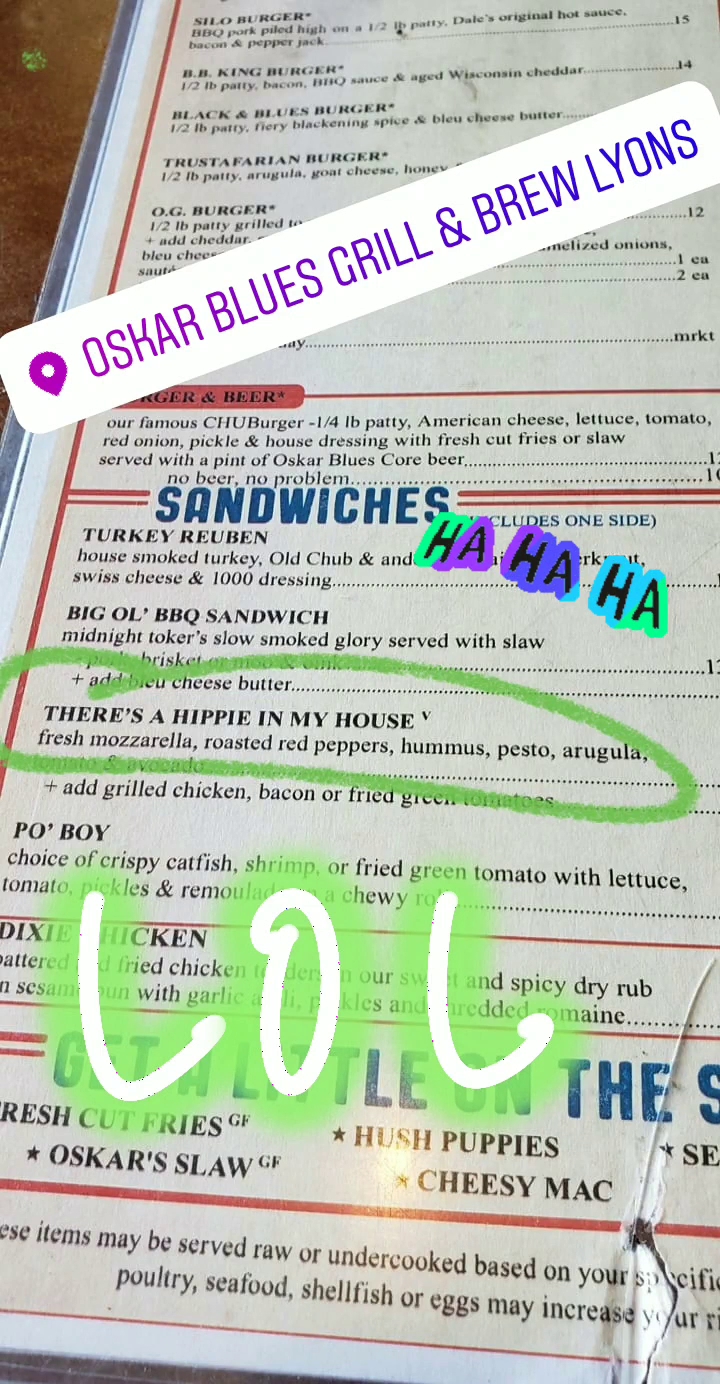 SILO BURGER*
BBQ pork piled high on a 1/2 lb patty, Dale's original hot sauce,
bacon & pepper jack....15
B.B. KING BURGER*
1/2 lb patty, bacon, BBQ sauce & aged Wisconsin cheddar....14
BLACK & BLUES BURGER*
1/2 lb patty, fiery blackening spice & bleu cheese butter....
TRUSTAFARIAN BURGER*
1/2 lb patty, arugula, goat cheese, honey
O.G. BURGER*
1/2 lb patty grilled to ....12
+ add cheddar,
bleu chees melized onions,
sauté ....1 ea
....2 ea
OSKAR BLUES GRILL & BREW LYONS
day....mrkt
RGER & BEER*
our famous CHUBurger -1/4 lb patty, American cheese, lettuce, tomato,
red onion, pickle & house dressing with fresh cut fries or slaw
served with a pint of Oskar Blues Core beer....
no beer, no problem....
SANDWICHES CLUDES ONE SIDE)
HA HA HA
TURKEY REUBEN
house smoked turkey, Old Chub &
swiss cheese & 1000 dressing....
BIG OL' BBQ SANDWICH
midnight toker's slow smoked glory served with slaw
pork, brisket or moo & oink
+ add bleu cheese butter....
THERE'S A HIPPIE IN MY HOUSE V
fresh mozzarella, roasted red peppers, hummus, pesto, arugula,
tomato & avocado....
+ add grilled chicken, bacon or fried green tomatoes....
PO' BOY
choice of crispy catfish, shrimp, or fried green tomato with lettuce,
tomato, pickles & remoulade on a chewy roll....
LOL
DIXIE CHICKEN
battered and fried chicken tenders in our sweet and spicy dry rub
n sesame bun with garlic aioli, pickles and shredded romaine....
GET A LITTLE ON THE S
RESH CUT FRIES GF
★ HUSH PUPPIES
★ SE
★ OSKAR'S SLAW GF
★ CHEESY MAC
ese items may be served raw or undercooked based on your specific
poultry, seafood, shellfish or eggs may increase your ri